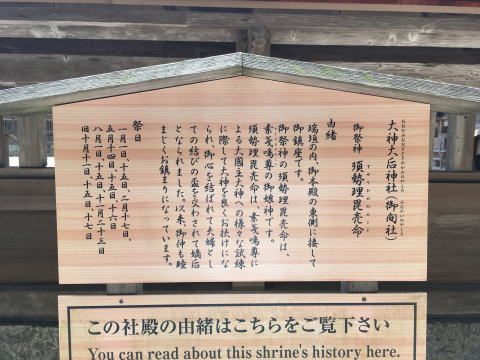 大神大后神社（御向社）
御祭神 須勢理毘売命
由緒
瑞垣の内、御本殿の東側に接して
御鎮座です。
御祭神の須勢理毘売命は、
素戔嗚尊の御娘神です。
須勢理毘売命は、素戔嗚尊に
よる大国主大神への様々な試練
に際して大神を良くお扶けにな
られ、御心を結ばれて夫婦とし
ての結びの盃を交わされて嫡后
となられました。以来、御仲も睦
まじくお鎮まりになっています。
祭日
一月一日、十五日、二月十七日、
五月十四日、十五日、十六日
八月一日、十五日、十一月二十三日
旧十月十一日、十五日、十七日
この社殿の由緒はこちらをご覧下さい
You can read about this shrine's history here.